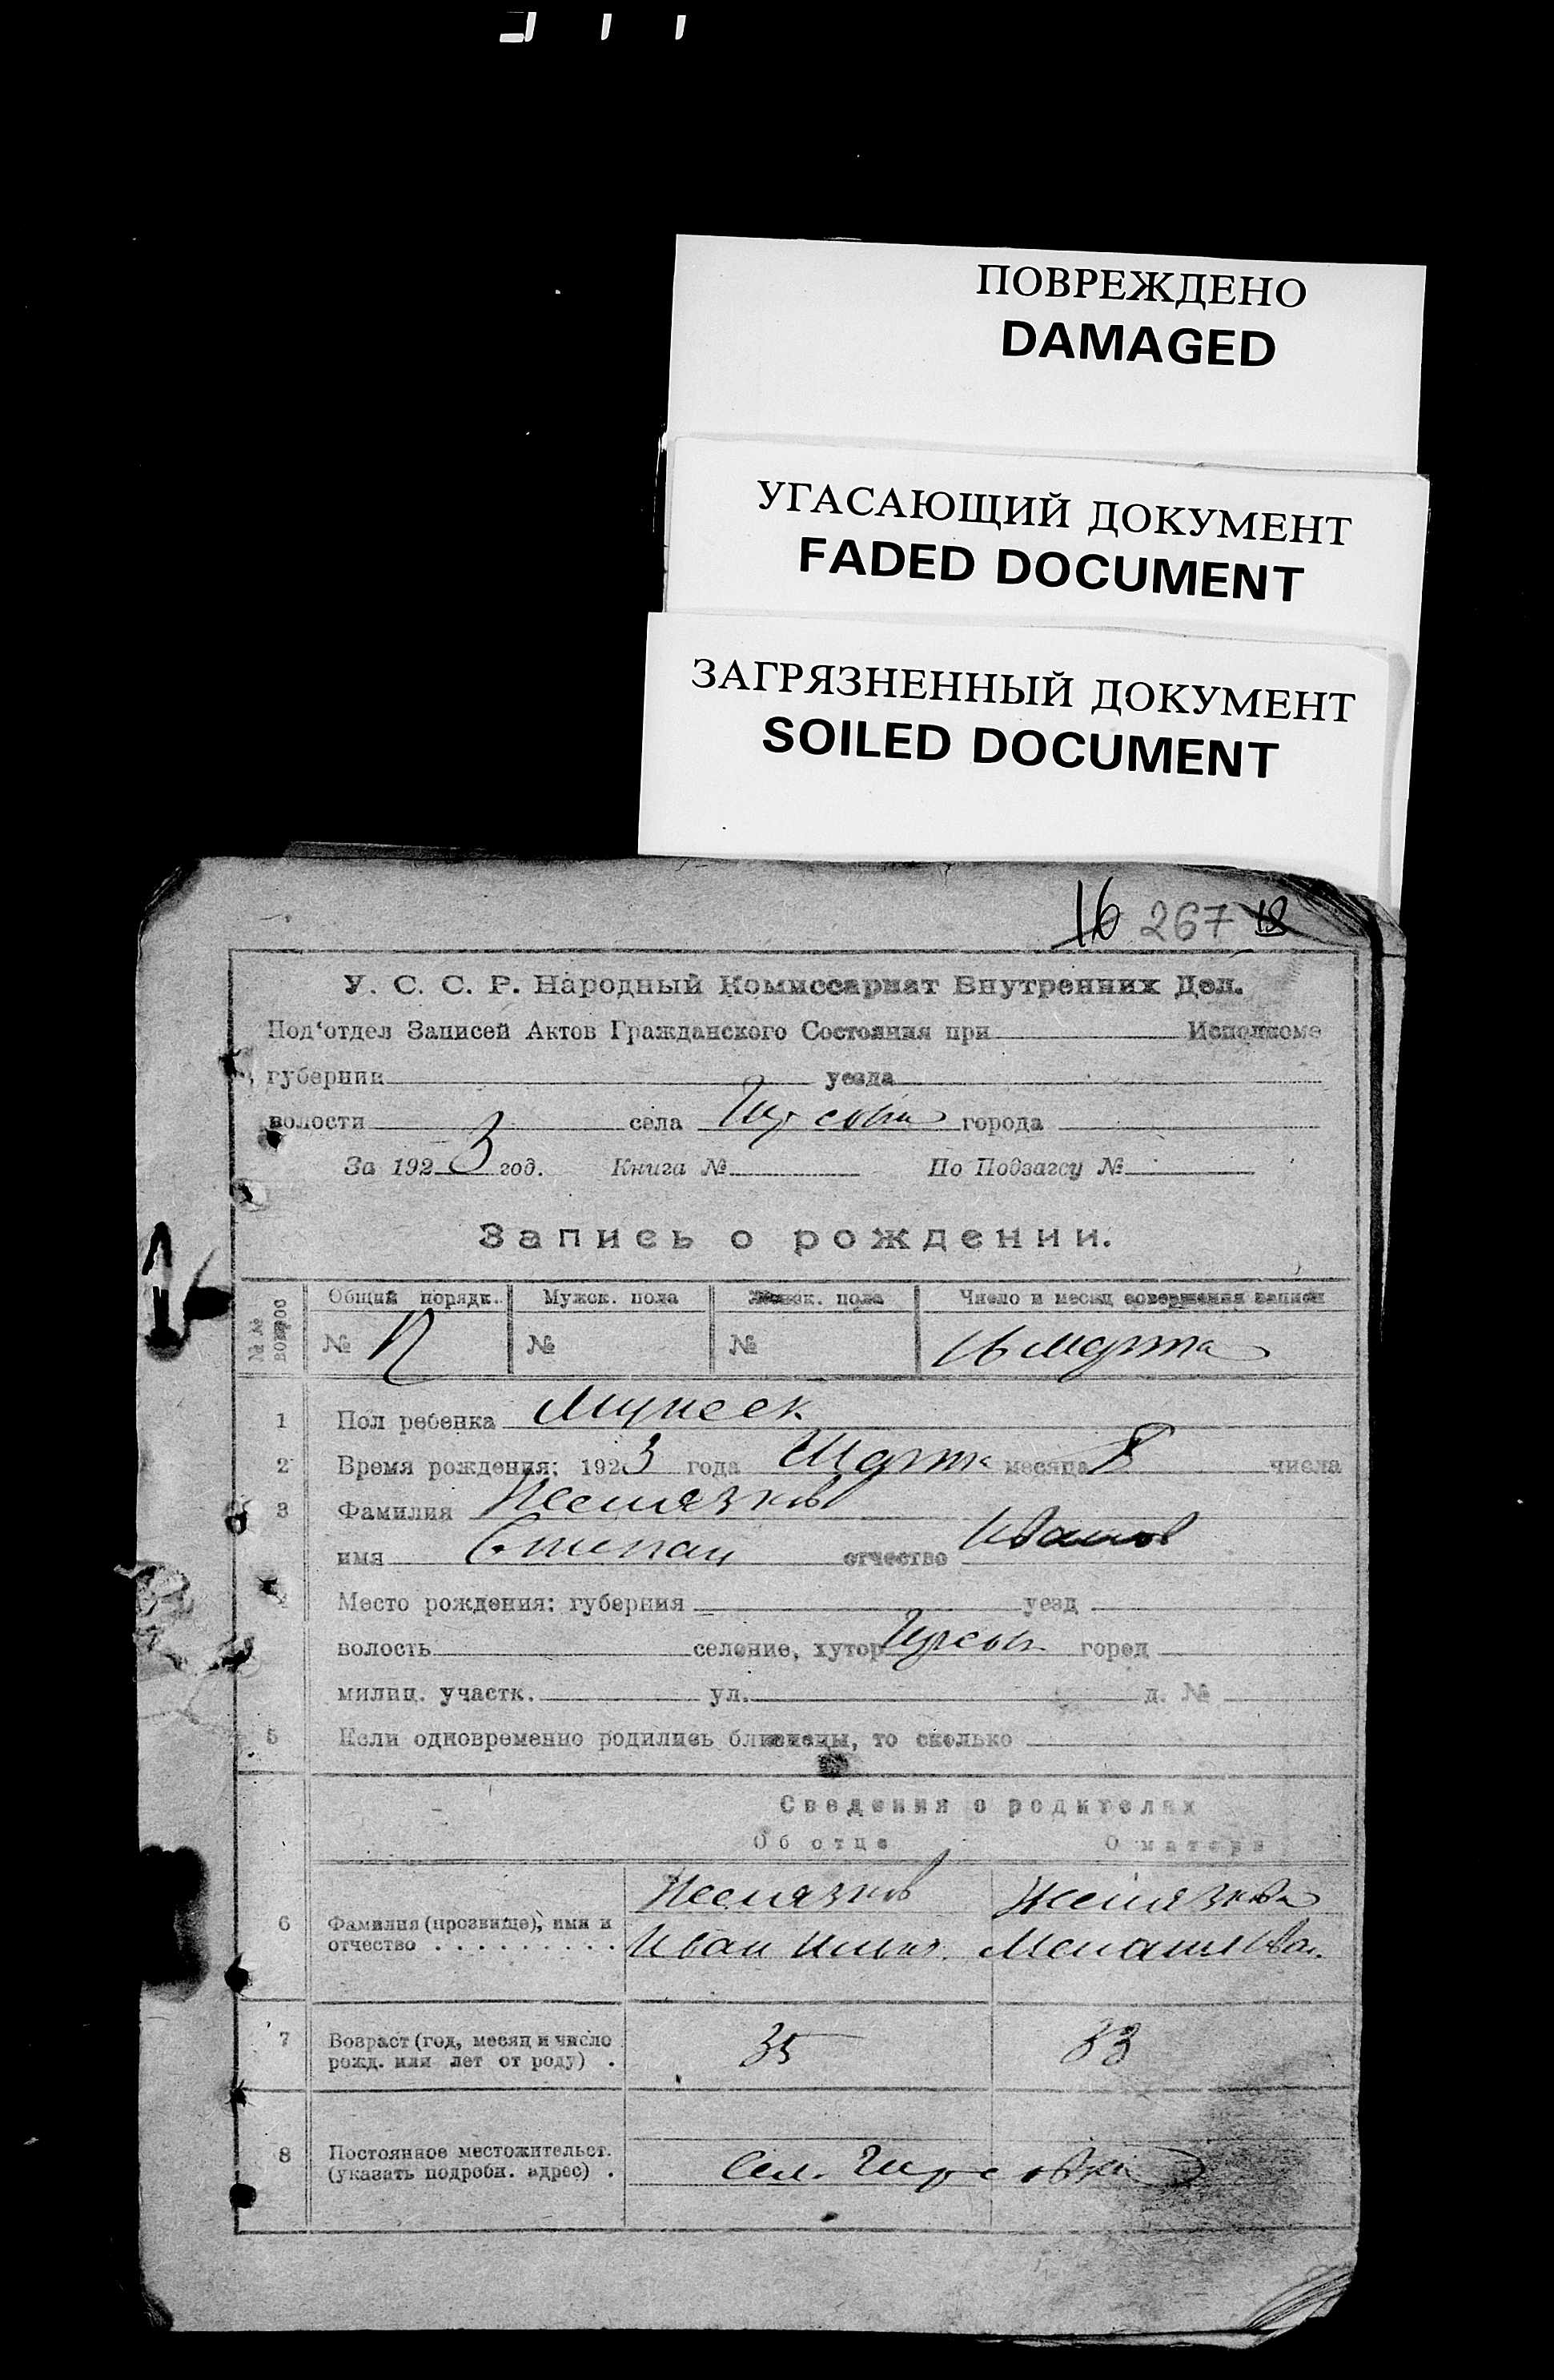 ПОВРЕЖДЕНО
DAMAGED
УГАСАЮЩИЙ ДОКУМЕНТ
FADED DOCUMENT
ЗАГРЯЗНЕННЫЙ ДОКУМЕНТ
SOILED DOCUMENT
16 267 12
У. С. С. Р. Народный Комиссариат Внутренних Дел.
Под‘отдел Записей Актов Гражданского Состояния при Исполкоме
губернии уезда
волости села города
За 1923 год. Книга № По Подзагсу №
Запись о рождении.
№№ вопрос Общий порядк. Мужск. пола Женск. пола Число и месяц совершения записи
№ № № 16 марта
1 Пол ребенка Мужеск
2 Время рождения: 1923 года Марта месяца 8 числа
3 Фамилия
имя Степан отчество Иванов
4 Место рождения: губерния уезд
волость селение, хутор город
милиц. участк. ул. д. №
5 Если одновременно родились близнецы, то сколько
Сведения о родителях
Об отце О матери
6 Фамилия (прозвище), имя и
отчество . . . . . . . . . Иван
7 Возраст (год, месяц и число
рожд. или лет от роду) . 35 33
8 Постоянное местожительст.
(указать подробн. адрес) . Сел.